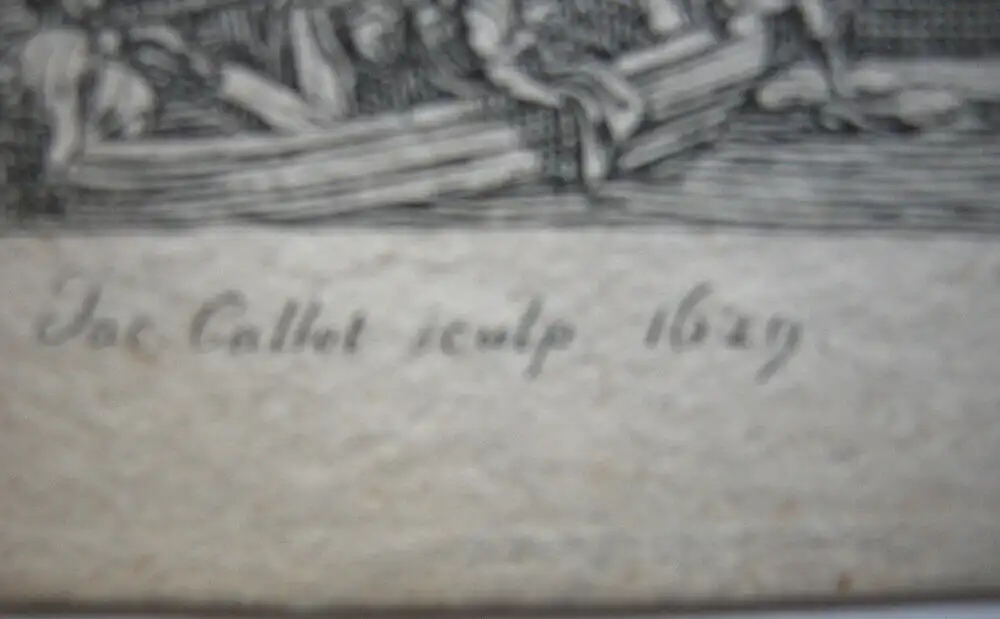 Jac Callot sculp 1629